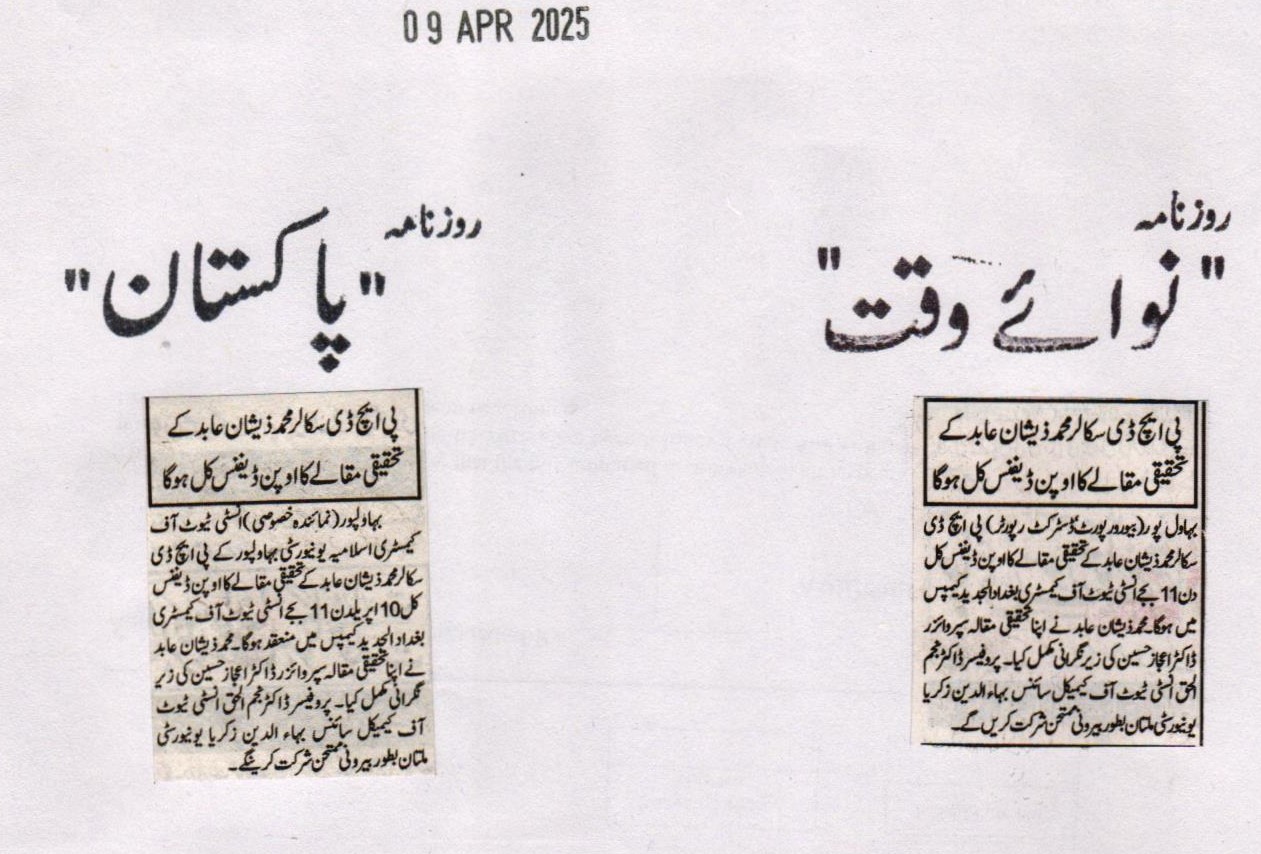 09 APR 2025
روزنامہ
"نوائے وقت"
پی ایچ ڈی سکالر محمد ذیشان عابد کے
تحقیقی مقالے کا اوپن ڈیفنس کل ہوگا
بہاول پور (بیورورپورٹ ڈسٹرکٹ رپورٹر) پی ایچ ڈی
سکالر محمد ذیشان عابد کے تحقیقی مقالے کا اوپن ڈیفنس کل
دن 11 بجے انسٹی ٹیوٹ آف کیمسٹری بغداد الجدید کیمپس
میں ہوگا۔ محمد ذیشان عابد نے اپنا تحقیقی مقالہ سپروائزر
ڈاکٹر اعجاز حسین کی زیر نگرانی مکمل کیا۔ پروفیسر ڈاکٹر نجم
الحق انسٹی ٹیوٹ آف کیمیکل سائنس بہاء الدین زکریا
یونیورسٹی ملتان بطور بیرونی ممتحن شرکت کریں گے۔
روزنامہ
"پاکستان"
پی ایچ ڈی سکالر محمد ذیشان عابد کے
تحقیقی مقالے کا اوپن ڈیفنس کل ہوگا
بہاولپور (نمائندہ خصوصی) انسٹی ٹیوٹ آف
کیمسٹری اسلامیہ یونیورسٹی بہاولپور کے پی ایچ ڈی
سکالر محمد ذیشان عابد کے تحقیقی مقالے کا اوپن ڈیفنس
کل 10 اپریل دن 11 بجے انسٹی ٹیوٹ آف کیمسٹری
بغداد الجدید کیمپس میں منعقد ہوگا۔ محمد ذیشان عابد
نے اپنا تحقیقی مقالہ سپروائزر ڈاکٹر اعجاز حسین کی زیر
نگرانی مکمل کیا۔ پروفیسر ڈاکٹر نجم الحق انسٹی ٹیوٹ
آف کیمیکل سائنس بہاء الدین زکریا یونیورسٹی
ملتان بطور بیرونی ممتحن شرکت کرینگے۔